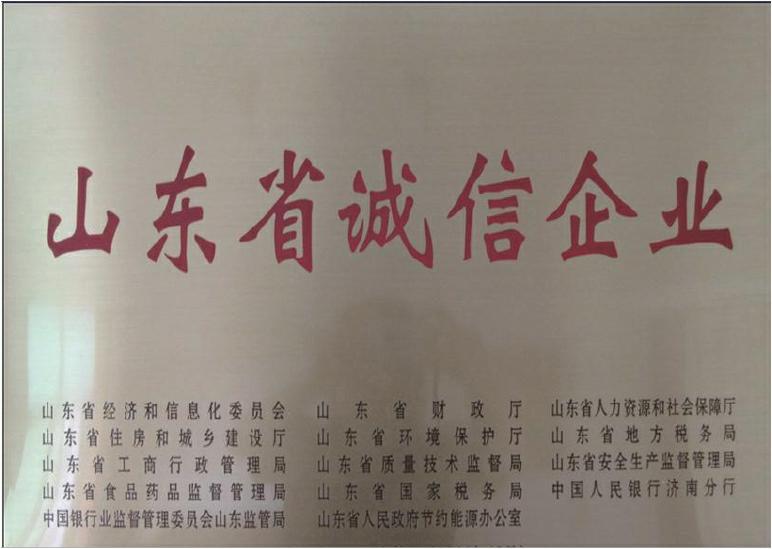 山东省诚信企业
山东省经济和信息化委员会 山东省财政厅 山东省人力资源和社会保障厅
山东省住房和城乡建设厅 山东省环境保护厅 山东省地方税务局
山东省工商行政管理局 山东省质量技术监督局 山东省安全生产监督管理局
山东省食品药品监督管理局 山东省国家税务局 中国人民银行济南分行
中国银行业监督管理委员会山东监管局 山东省人民政府节约能源办公室